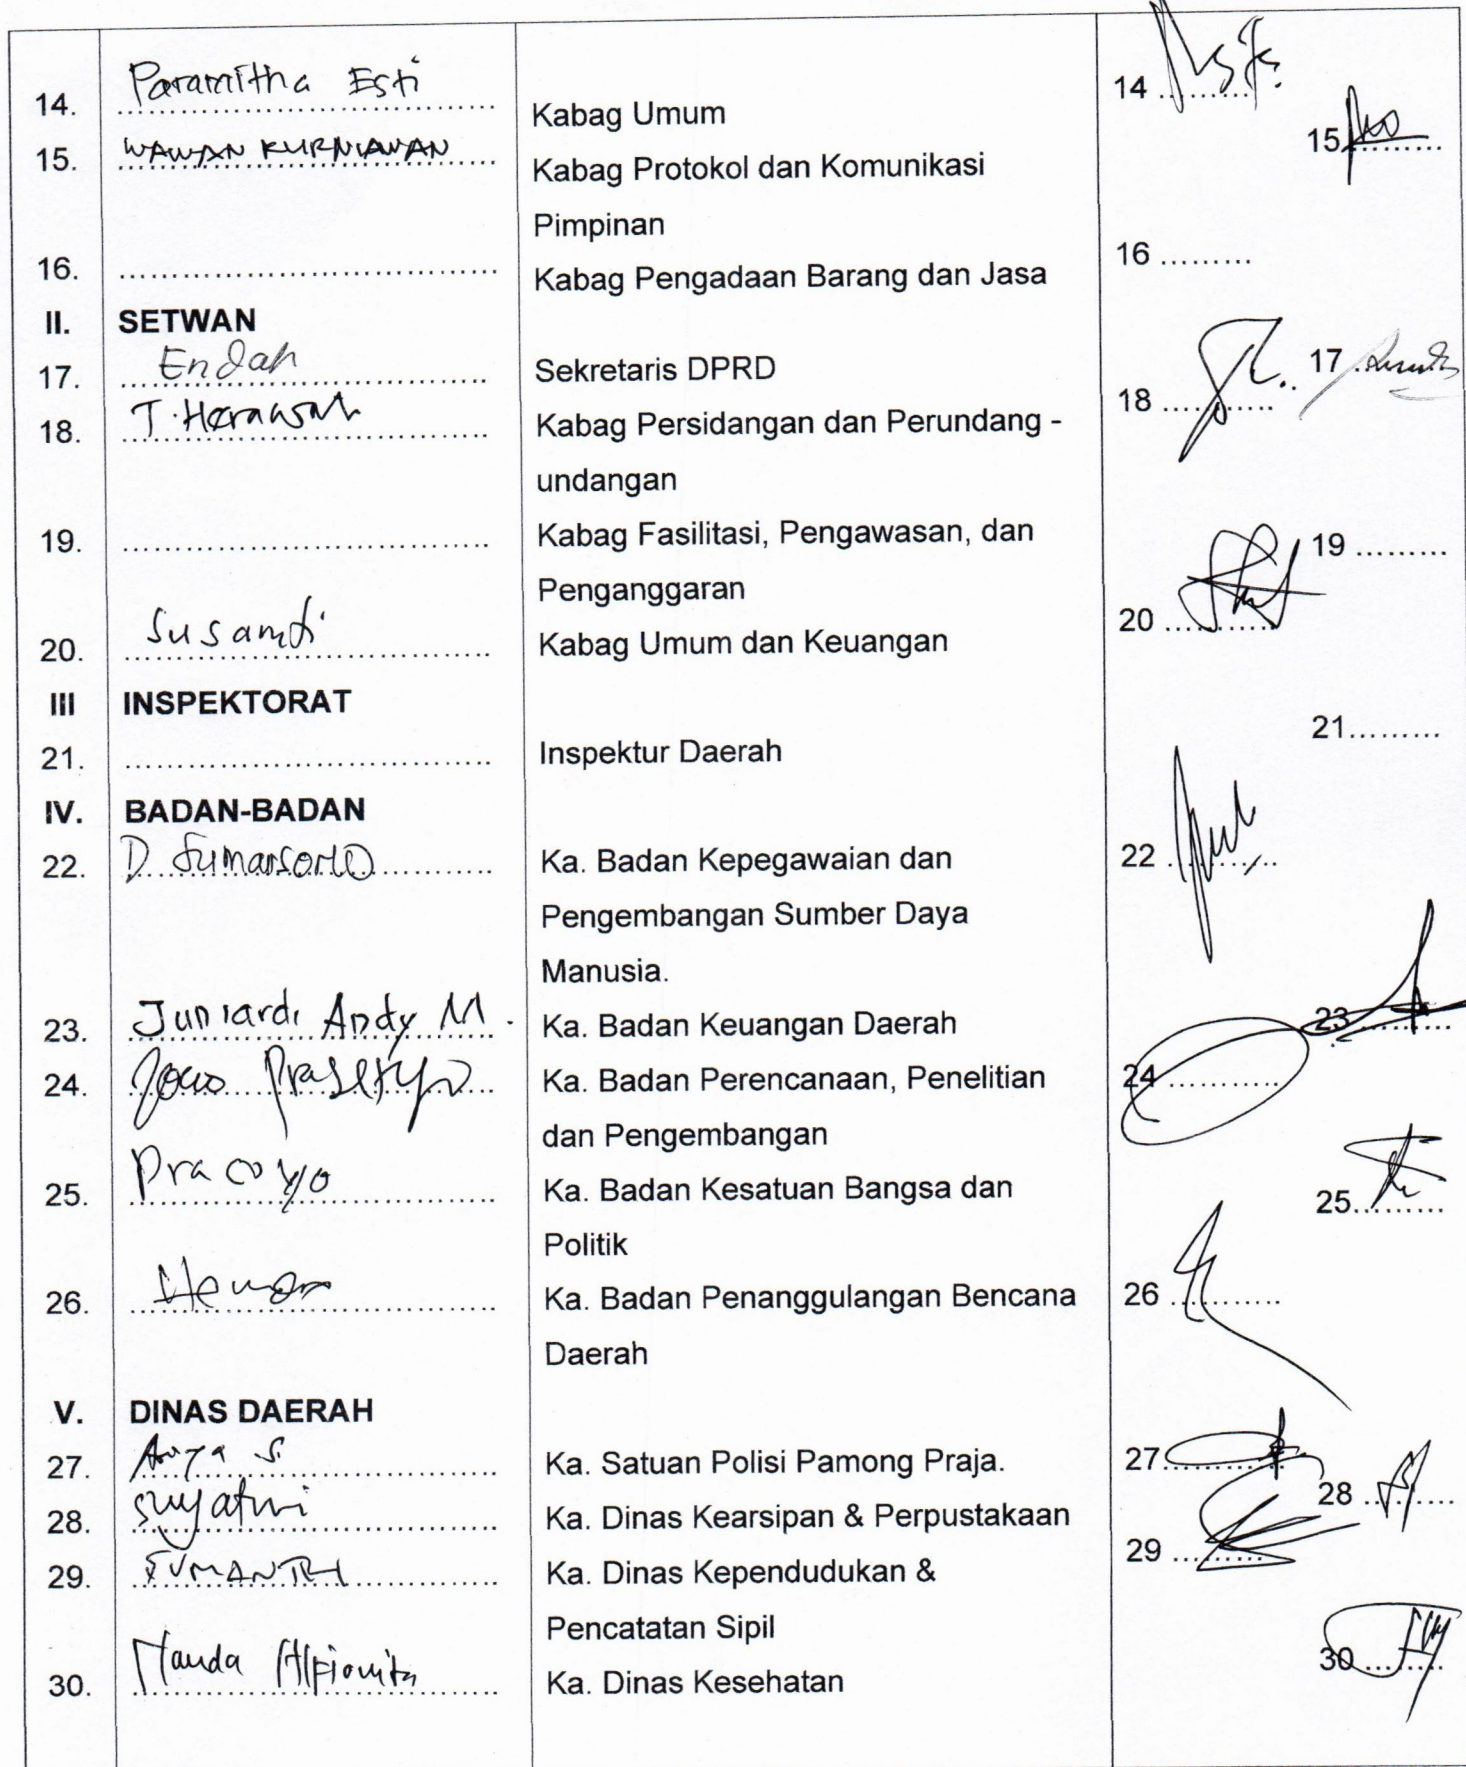 14. Paramitha Esti Kabag Umum 14 .........
15. WAWAN KURNIAWAN Kabag Protokol dan Komunikasi 15.........
Pimpinan
16. ................................. Kabag Pengadaan Barang dan Jasa 16 .........
II. SETWAN
17. Endah Sekretaris DPRD 17 .........
18. T. Herawati Kabag Persidangan dan Perundang - 18 ...........
undangan
19. ................................. Kabag Fasilitasi, Pengawasan, dan 19 .........
Penganggaran
20. Susanti Kabag Umum dan Keuangan 20 ...........
III INSPEKTORAT
21. ................................. Inspektur Daerah 21.........
IV. BADAN-BADAN
22. D. Sumarsono Ka. Badan Kepegawaian dan 22 ...........
Pengembangan Sumber Daya
Manusia.
23. Juniardi Andy M. Ka. Badan Keuangan Daerah 23 .........
24. Prasetyo Ka. Badan Perencanaan, Penelitian 24 ...........
dan Pengembangan
25. Pracoyo Ka. Badan Kesatuan Bangsa dan 25.........
Politik
26. Ka. Badan Penanggulangan Bencana 26 ...........
Daerah
V. DINAS DAERAH
27. Arya S. Ka. Satuan Polisi Pamong Praja. 27...........
28. Suyatmi Ka. Dinas Kearsipan & Perpustakaan 28 .........
29. SUMANTRI Ka. Dinas Kependudukan & 29 ...........
Pencatatan Sipil
30. Nanda Alfionita Ka. Dinas Kesehatan 30 .........